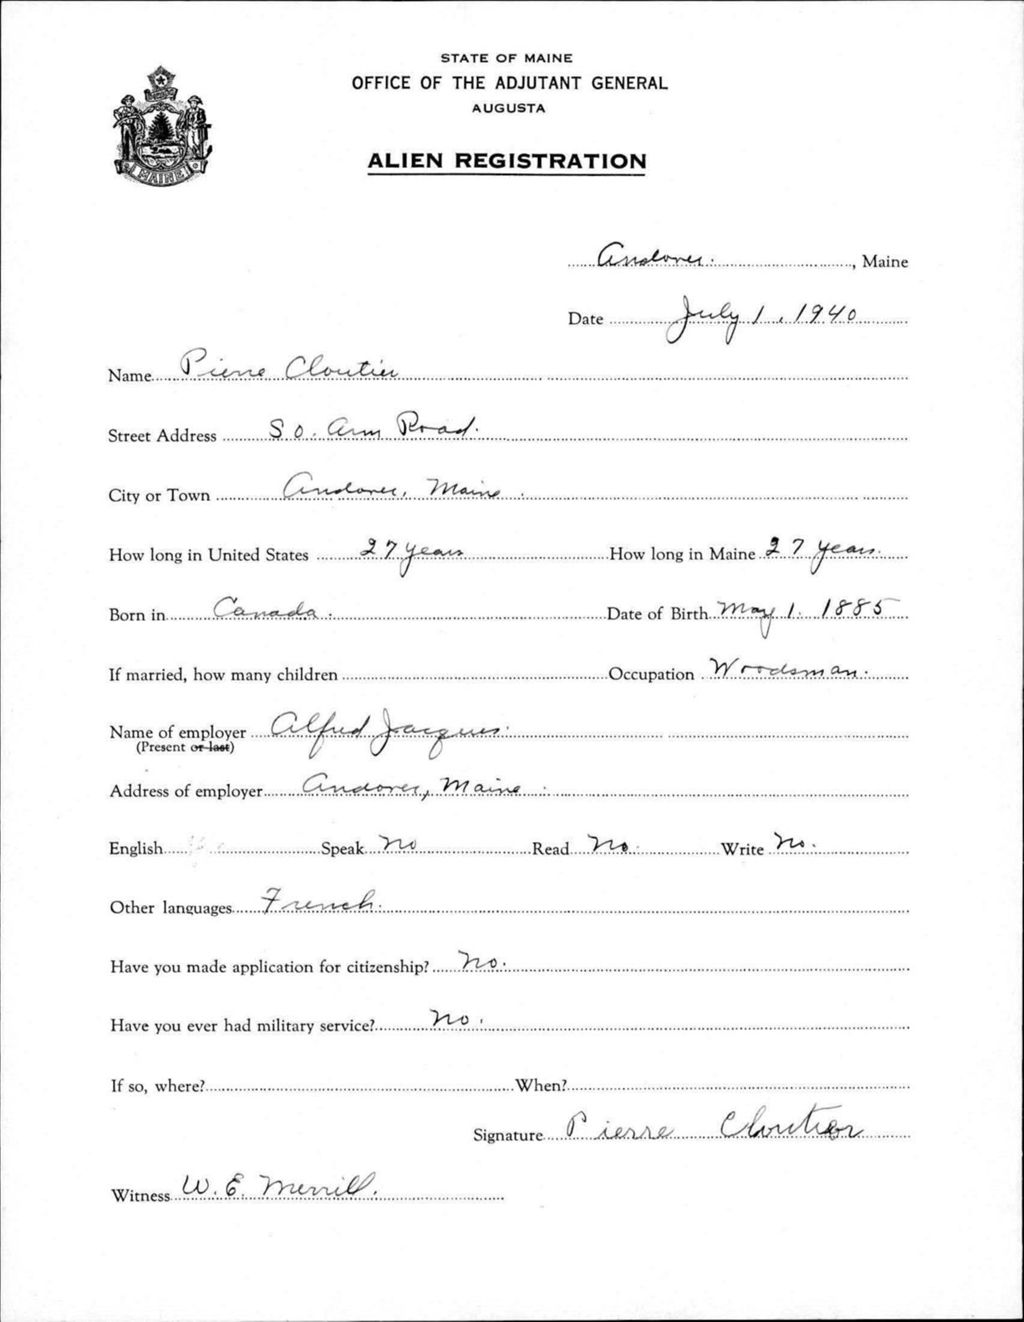 STATE OF MAINE
OFFICE OF THE ADJUTANT GENERAL
AUGUSTA
ALIEN REGISTRATION
MAINE
Andover, Maine
Date July 1, 1940
Name Pierre Cloutier
Street Address So. Arm Road.
City or Town Andover, Maine.
How long in United States 27 years How long in Maine 27 years.
Born in Canada. Date of Birth May 1. 1885
If married, how many children Occupation Woodsman.
Name of employer Alfred Jacques.
(Present or last)
Address of employer Andover, Maine.
English Speak No Read No. Write No.
Other languages French.
Have you made application for citizenship? No.
Have you ever had military service? No.
If so, where? When?
Signature Pierre Cloutier
Witness W. E. Merrill.